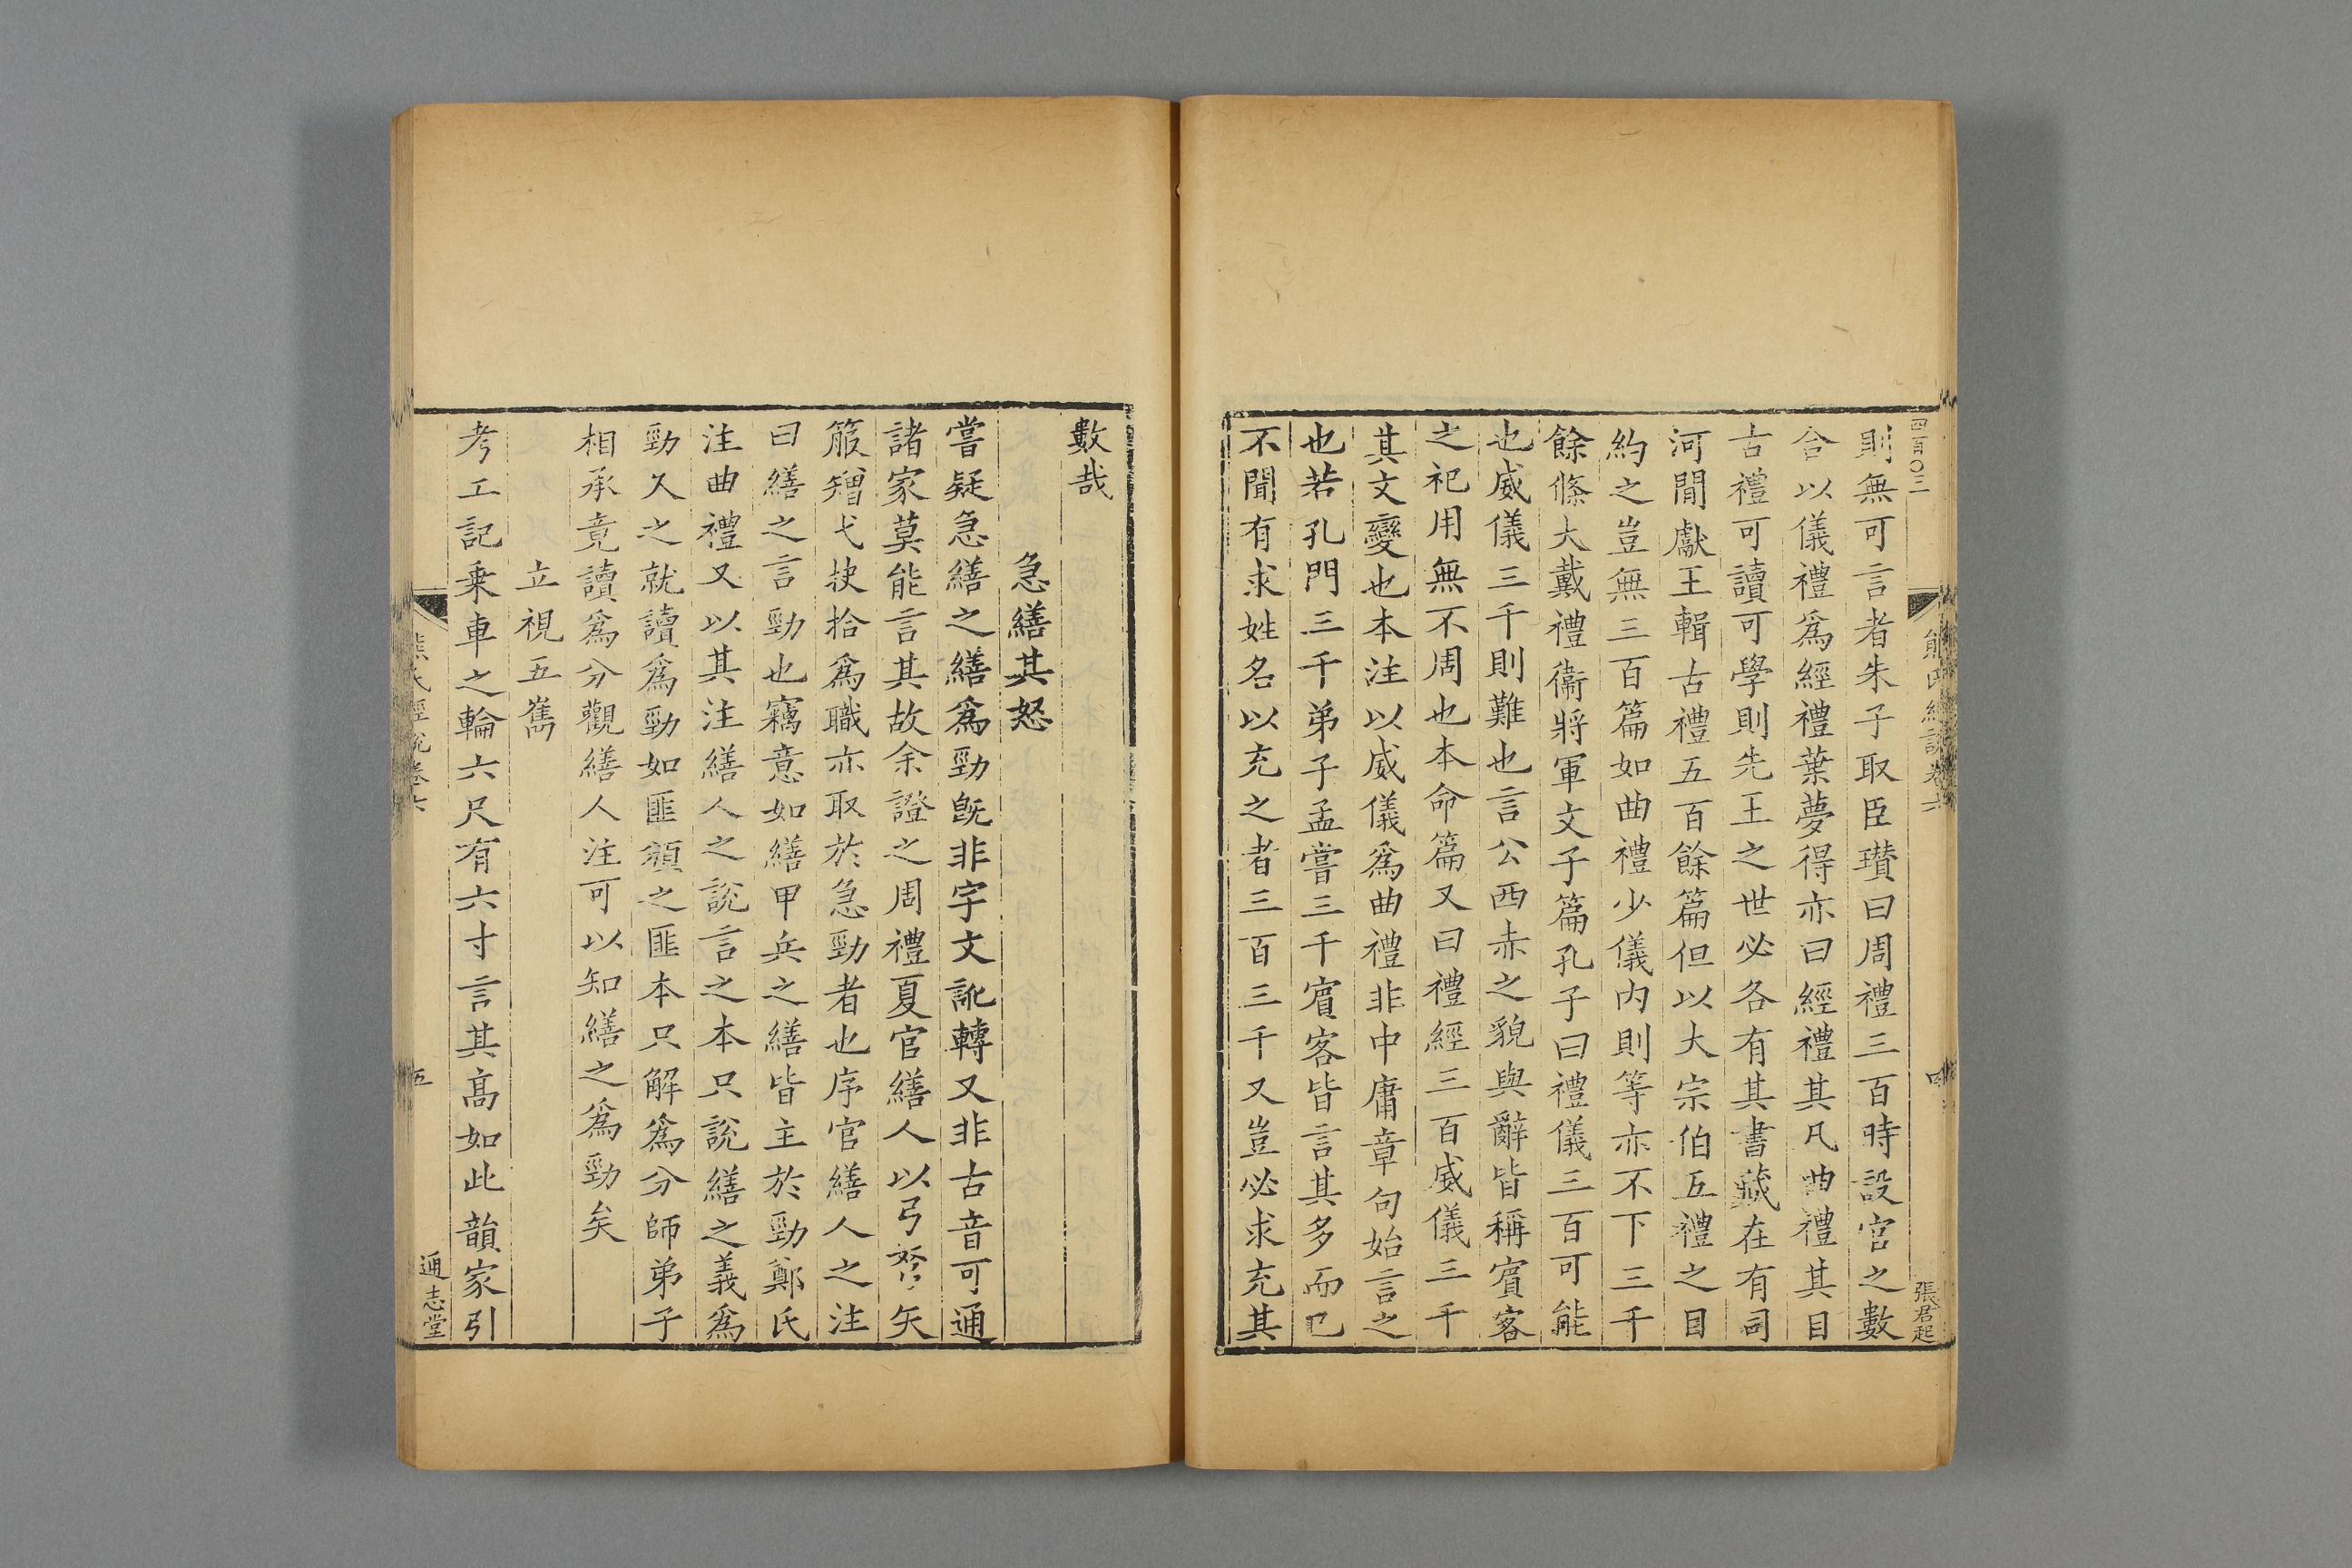 四百〇三
則無可言者朱子取臣瓚曰周禮三百時設官之數
合以儀禮爲經禮葉夢得亦曰經禮其凡曲禮其目
古禮可讀可學則先王之世必各有其書藏在有司
河間獻王輯古禮五百餘篇但以大宗伯五禮之目
約之豈無三百篇如曲禮少儀内則等亦不下三千
餘條大戴禮衞將軍文子篇孔子曰禮儀三百可能
也威儀三千則難也言公西赤之貌與辭皆稱賓客
之祀用無不周也本命篇又曰禮經三百威儀三千
其文變也本注以威儀爲曲禮非中庸章句始言之
也若孔門三千弟子孟嘗三千賓客皆言其多而已
不聞有求姓名以充之者三百三千又豈必求充其
熊氏經說卷六
四
張君起
數哉
急繕其怒
嘗疑急繕之繕爲勁旣非字文訛轉又非古音可通
諸家莫能言其故余證之周禮夏官繕人以弓弩矢
箙矰弋抉拾爲職亦取於急勁者也序官繕人之注
曰繕之言勁也竊意如繕甲兵之繕皆主於勁鄭氏
注曲禮又以其注繕人之說言之本只說繕之義爲
勁久之就讀爲勁如匪頒之匪本只解爲分師弟子
相承竟讀爲分觀繕人注可以知繕之爲勁矣
立視五雟
考工記乗車之輪六尺有六寸言其高如此韻家引
熊氏經說卷六
五
通志堂